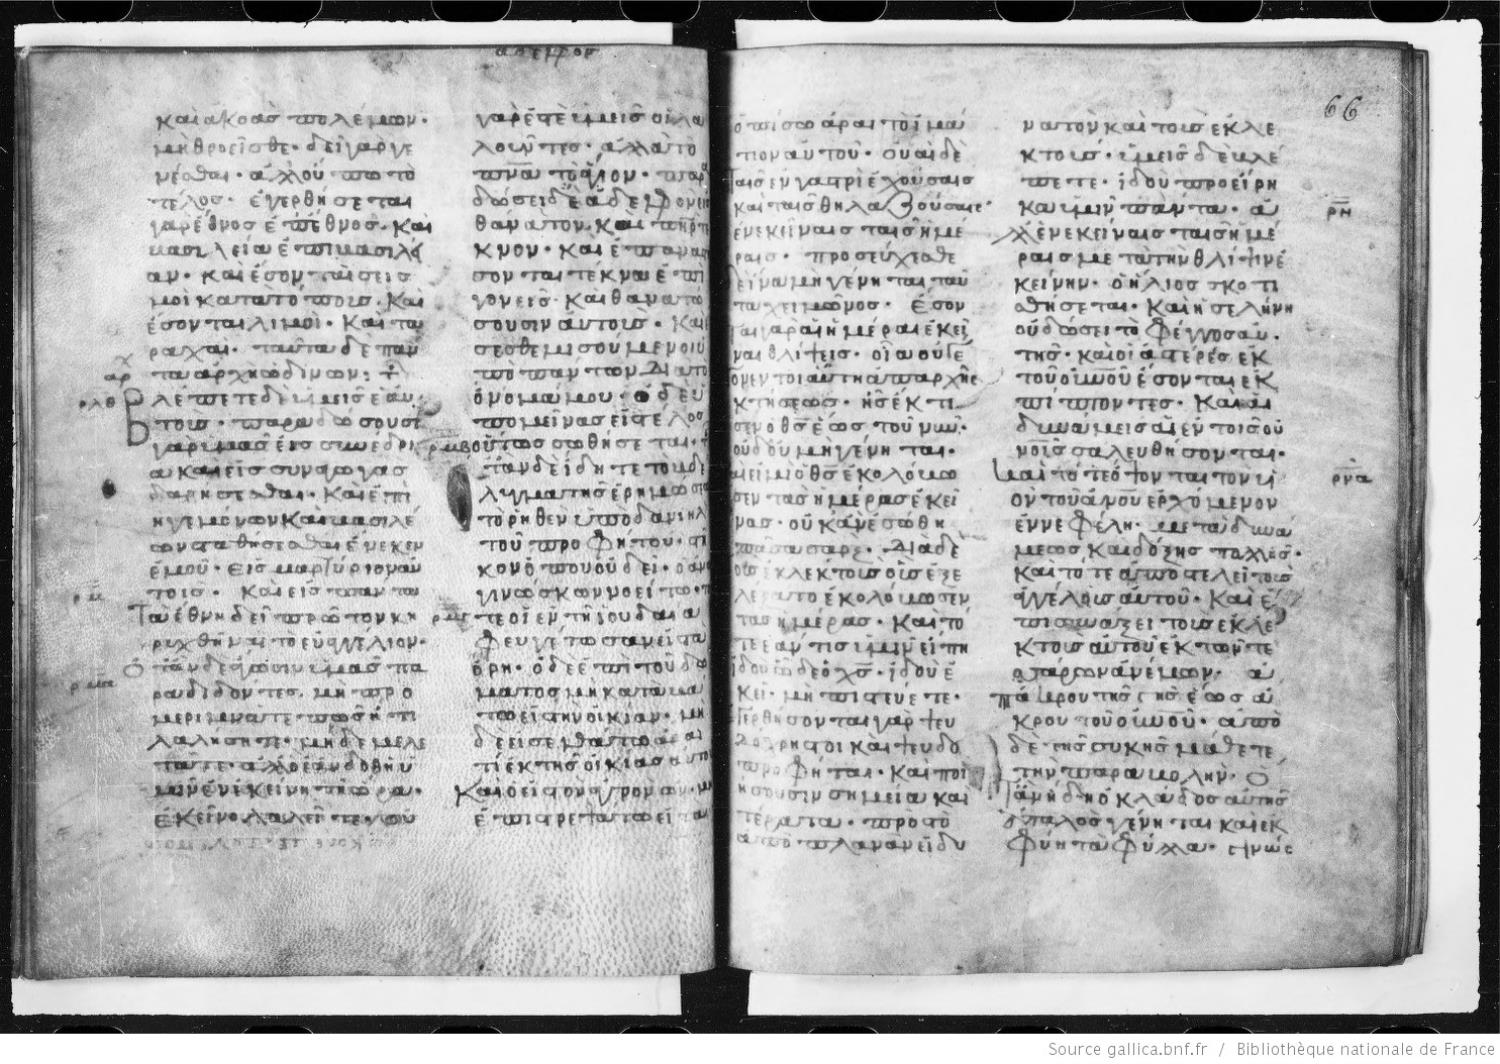 καὶ ἀκοὰς πολέμων·
μὴ θροεῖσθε· δεῖ γὰρ γε
νέσθαι· ἀλλ' οὔπω τὸ
τέλος· ἐγερθήσεται
γὰρ ἔθνος ἐπ' ἔθνος· Καὶ
βασιλεία ἐπὶ βασιλεί
αν· καὶ ἔσονται σεισ
μοὶ κατὰ τόπους· Καὶ
ἔσονται λιμοὶ· Καὶ τα
ραχαί· ταῦτα δὲ πάν
τα ἀρχὴ ὠδίνων·
Βλέπετε δὲ ὑμεῖς ἑαυ
τοὺς· παραδώσουσι
γὰρ ὑμᾶς εἰς συνέδρι
α καὶ εἰς συναγωγὰς
δαρήσεσθαι· Καὶ ἐπὶ
ἡγεμόνων Καὶ βασιλέ
ων σταθήσεσθαι ἕνεκεν
ἐμοῦ· εἰς μαρτύριον αὐ
τοῖς· Καὶ εἰς πάντα
Τὰ ἔθνη δεῖ πρῶτον κη
ρυχθῆναι τὸ εὐαγγέλιον·
ὅταν δὲ ἄγωσιν ὑμᾶς πα
ραδιδόντες· μὴ προ
μεριμνᾶτε πῶς ἢ τί
λαλήσητε· μηδὲ μελε
τᾶτε· ἀλλ' ὃ ἐὰν δοθῇ ὑ
μῖν ἐν ἐκείνῃ τῇ ὥρα·
ἐκεῖνο λαλεῖτε· οὐ
γάρ ἐστὲ ὑμεῖς οἱ λα
λοῦντες· ἀλλὰ τὸ
πνα τὸ ἅγιον· παρα
δώσει δὲ ἀδελφὸν εἰς
θάνατον· Καὶ πηρ τε
κνον· Καὶ ἐπανα
σονται τέκνα ἐπὶ
γονεῖς· Καὶ θανατώ
σουσιν αὐτοὺς· Καὶ
σεσθε μισούμενοι ὑ
πὸ πάντων διὰ τὸ
ὄνομά μου· ὁ δὲ ὑ
πομείνας εἰς τέλος
οὗτος σωθήσεται·
ὅταν δὲ ἴδητε τὸ βδέ
λυγμα τῆς ἐρημώσεως
τὸ ρηθὲν ὑπὸ δανιὴλ
τοῦ προφήτου·
κον ὅπου οὐ δεῖ· ὁ ἀνα
γινώσκων νοείτω·
τε οἱ ἐν τῇ ἰουδαία
φευγέτωσαν εἰς τὰ
ὄρη· ὁ δὲ ἐπὶ τοῦ δώ
ματος μὴ καταβά
τω εἰς τὴν οἰκίαν· μη
δὲ εἰσελθάτω ἆραί
τι ἐκ τῆς οἰκίας αὐτοῦ
Καὶ ὁ εἰς τὸν ἀγρὸν ὢν· μὴ
ἐπιστρεψάτω εἰς τὰ
66
ὀπίσω ἆραι τὸ ἱμά
τιον αὐτοῦ· οὐαὶ δὲ
ταῖς ἐν γαστρὶ ἐχούσαις
καὶ ταῖς θηλαζούσαις·
ἐν ἐκείναις ταῖς ἡμέ
ραις· προσεύχεσθε
δὲ ἵνα μὴ γένηται ταῦ
τα χειμῶνος· ἔσον
ται γὰρ αἱ ἡμέραι ἐκεῖ
ναι θλίψεις· οἷαι οὐ γέ
γόνεν τοιαύτη ἀπ' ἀρχῆς
κτήσεως· ἧς ἔκτι
σεν ὁ θς ἕως τοῦ νῦν·
οὐδ' οὐ μὴ γένηται·
καὶ εἰ μὴ ὁ θς ἐκολόβω
σεν τὰς ἡμέρας ἐκεί
νας· οὐκ ἂν ἐσώθη
πᾶσα σὰρξ· Διὰ δὲ
τοὺς ἐκλεκτοὺς οὓς ἐξε
λέξατο ἐκολόβωσεν
τὰς ἡμέρας· Καὶ τό
τε ἐάν τις ὑμῖν εἴπη
ἰδοὺ ὧδε ὁ χς· ἰδοὺ ἐ
κεῖ· μὴ πιστεύετε·
ἐγερθήσονται γὰρ ψευ
δόχρηστοι Καὶ ψευδο
προφῆται· Καὶ ποι
ήσουσιν σημεῖα καὶ
τέρατα· πρὸς τὸ
ἀποπλανᾶν εἰ δυ
νατὸν καὶ τοὺς ἐκλε
κτούς· ὑμεῖς δὲ βλέ
πετε· ἰδοὺ προείρη
κα ὑμῖν πάντα· ἀλ
λ' ἐν ἐκείναις ταῖς ἡμέ
ραις μετὰ τὴν θλίψιν ἐ
κείνην· ὁ ἥλιος σκοτι
σθήσεται· Καὶ ἡ σελήνη
οὐ δώσει τὸ φέγγος αὐ
τῆς· καὶ οἱ ἀστέρες ἐκ
τοῦ οὐνοῦ ἔσονται ἐκ
πίπτοντες· Καὶ αἱ
δυνάμεις αἱ ἐν τοῖς οὐ
νοῖς σαλευθήσονται·
Καὶ τότε ὄψονται τὸν υἱ
ὸν τοῦ ἀνου ἐρχόμενον
ἐν νεφέλη· μετὰ δυνά
μεως καὶ δόξης πολλῆς·
Καὶ τότε ἀποστελεῖ τοὺς
ἀγγέλους αὐτοῦ· Καὶ ἐ
πισυνάξει τοὺς ἐκλε
κτοὺς αὐτοῦ ἐκ τῶν τε
σσάρων ἀνέμων· ἀ
π' ἄκρου τῆς γῆς ἕως ἄ
κρου τοῦ οὐνοῦ· ἀπὸ
δὲ τῆς συκῆς μάθετε
τὴν παραβολήν· ὅ
ταν ἤδη ὁ κλάδος αὐτῆς
ἁπαλὸς γένηται καὶ ἐκ
φύη τὰ φύλλα· γινώς
ρν
ρνα
Source gallica.bnf.fr / Bibliothèque nationale de France